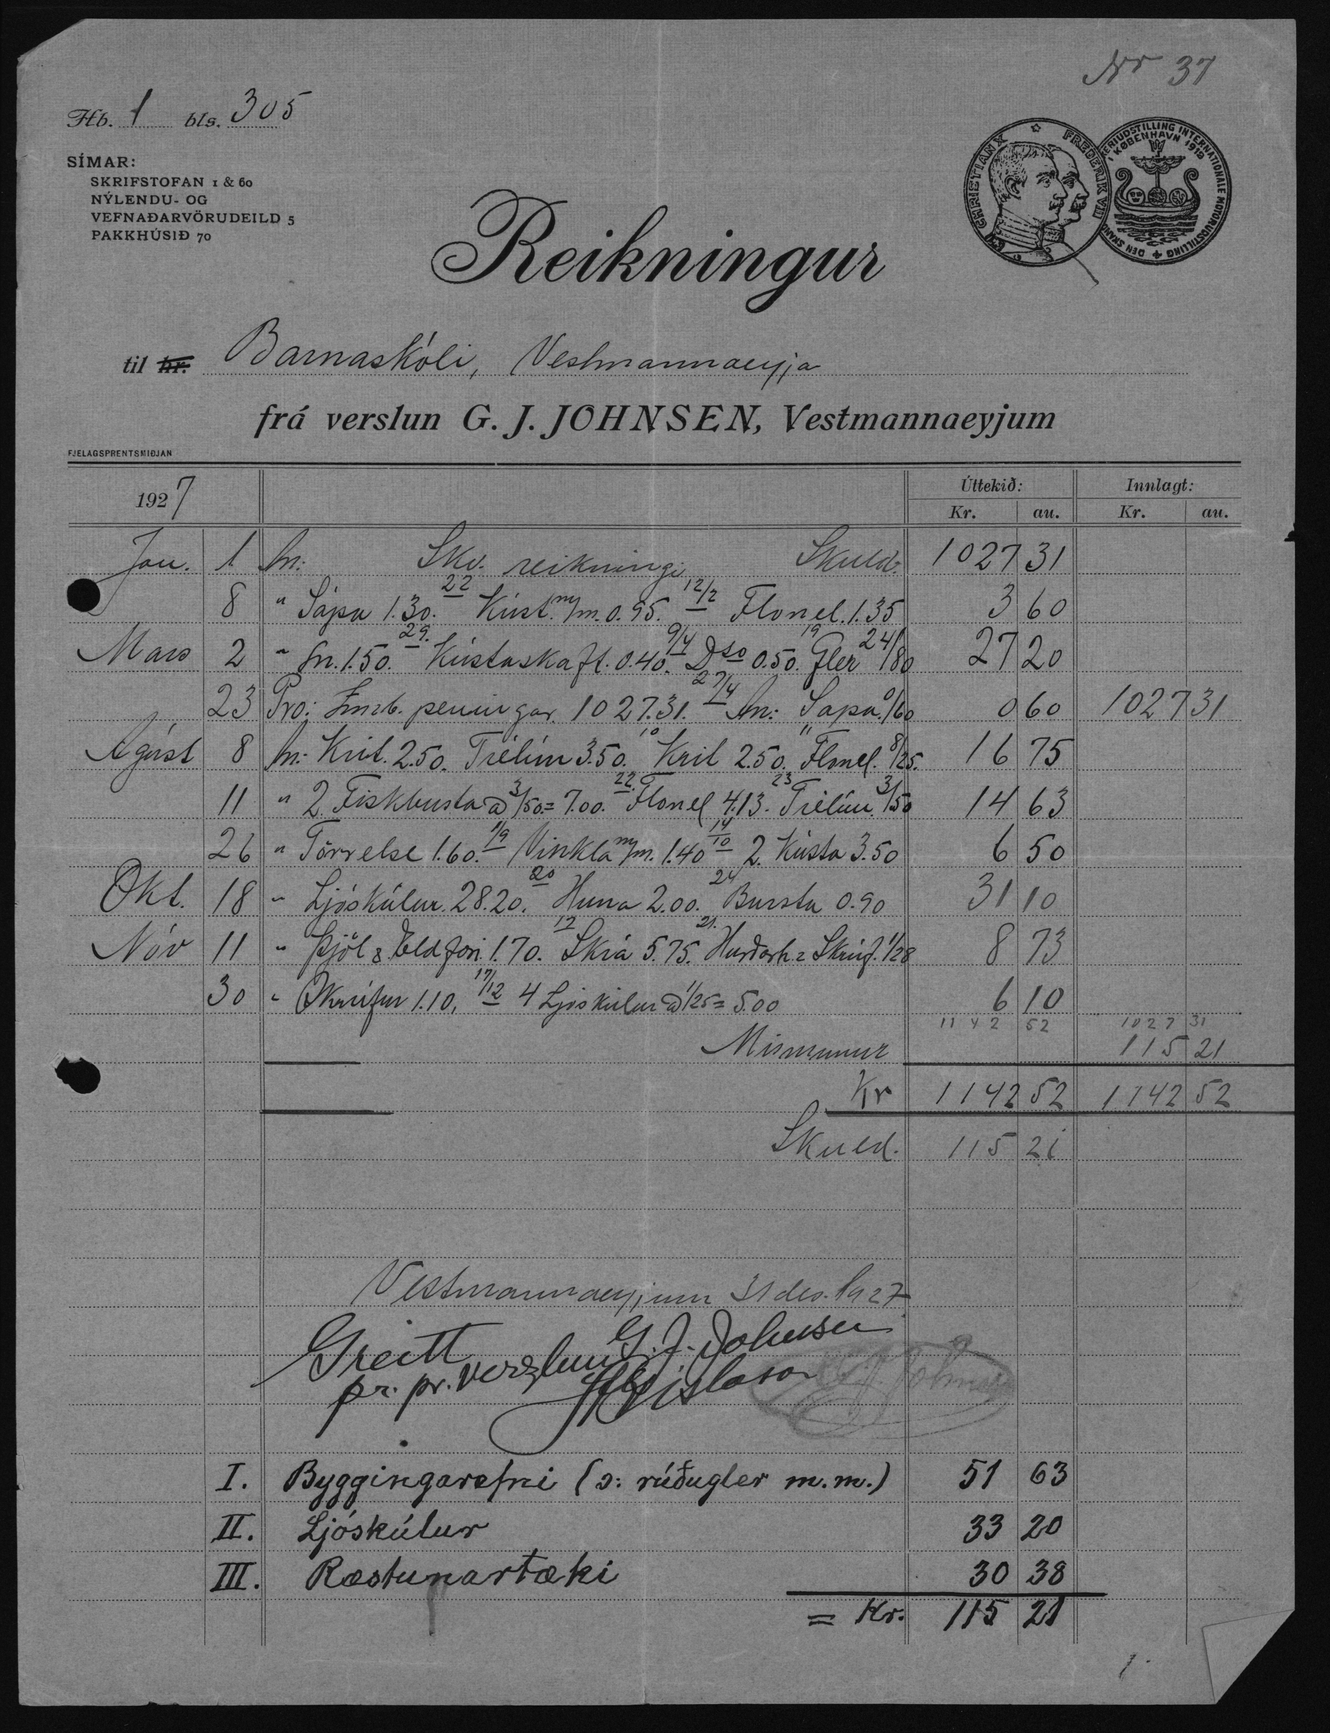 Nr 37
Hb. 1 bls. 305
SÍMAR:
SKRIFSTOFAN 1 & 60
NÝLENDU- OG
VEFNAÐARVÖRUDEILD 5
PAKKHÚSIÐ 70
CHRISTIAN X ☆ FREDERIK VIII
INTERNATIONALE MOTORUDSTILLING
I KØBENHAVN 1912
Reikningur
til hr. Barnaskóli, Vestmannaeyja
frá verslun G. J. JOHNSEN, Vestmannaeyjum
FJELAGSPRENTSMIÐJAN
1927 Úttekið: Innlagt:
Kr. au. Kr. au.
Jan. 1 An: Skv. reikningi Skuld. 1027 31
8 " Sápa 1.30. 22 Kúst m/m. 0.95. 12/2 Flonel. 1.35 3 60
Mars 2 " 1.50. 29. Kústaskaft. 0.40. 9/4 Do 0.50. 19 Gler 24/80 27 20
23 Pro: Innb. peningar 1027.31. 27/4 An: Sápa. 0/60 0 60 1027 31
Ágúst 8 An: Krit. 2.50. Trélím 3.50. 10 Krit 2.50. 11 Flonel. 8/25. 16 75
11 " 2 Fiskbusta a 3/50 = 7.00. 22 Flonel 4.13. 23 Trélím. 3/50 14 63
26 " Törrelse 1.60. 1/9 Vinkla m/m. 1.40 14/10 2 Kústa 3.50 6 50
Okt. 18 " Ljóskúlur. 28.20. 20 Huna 2.00. 24 Bursta 0.90 31 10
Nóv 11 " Þjöl & Eldfori 1.70. 12 Skrá 5.75. 21. Hurðarh = Skrúf. 1/28 8 73
30 " Skrúfur 1.10. 17/12 4 Ljóskúlur a 1/25 = 5.00 6 10
1142 52 1027 31
Mismunur 115 21
Kr 1142 52 1142 52
Skuld. 115 21
Vestmannaeyjum 31 des. 1927
Greitt
pr. pr. verzlun G. J. Johnsen
G. J. Johnsen
I. Byggingarefni (ɔ: rúðugler m.m.) 51 63
II. Ljóskúlur 33 20
III. Ræstunartæki 30 38
= Kr. 115 21
1.